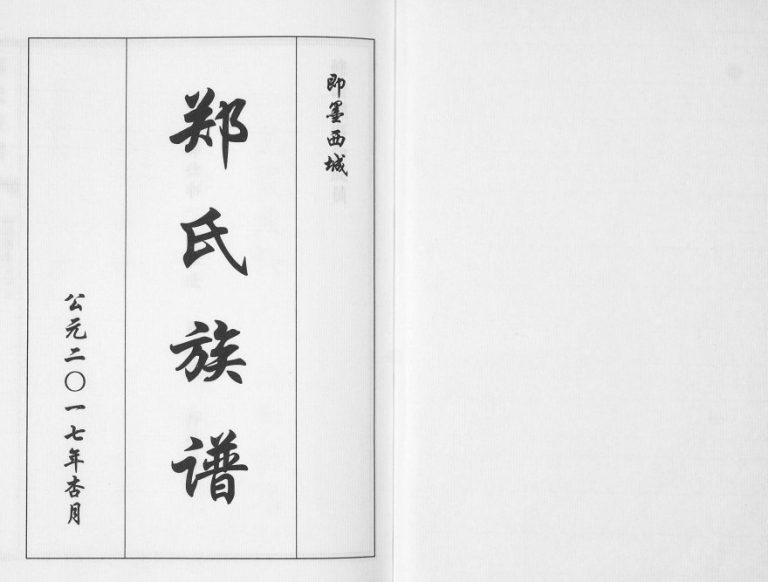 即墨西城
郑氏族谱
公元二〇一七年杏月